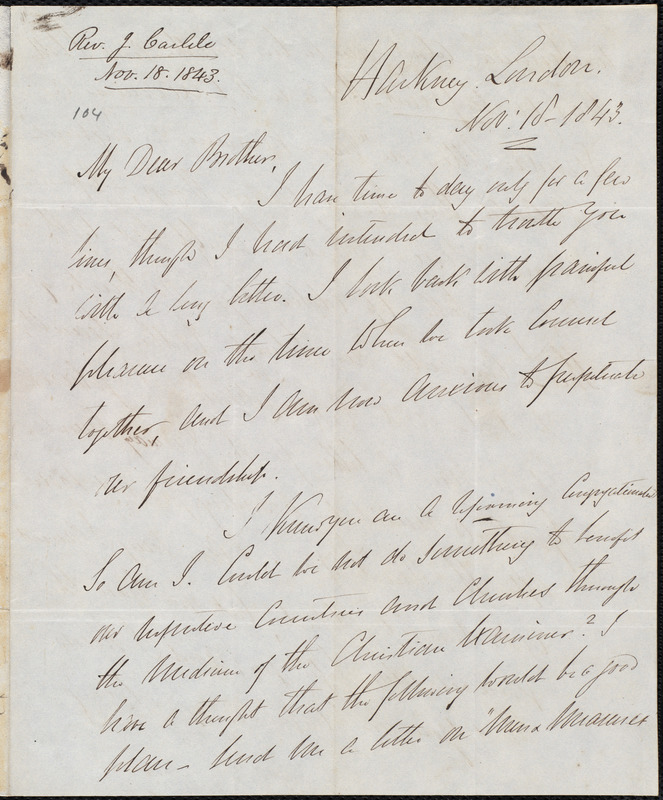 Rev. J. Carlile
Nov. 18. 1843.
104
Hackney. London.
Nov: 18 - 1843.
My Dear Brother,
I have time to day only for a few
lines, though I had intended to trouble you
with a long letter. I look back with painful
pleasure on the time when we took Counsel
together, and I am now anxious to perpetuate
our friendship.
I know you are a Congregationalist
So am I. Could we not do something to benefit
our respective Countries and Churches through
the Medium of the Christian Examiner? I
have a thought that the following would be a good
plan - Send me a letter on "Men & Measures